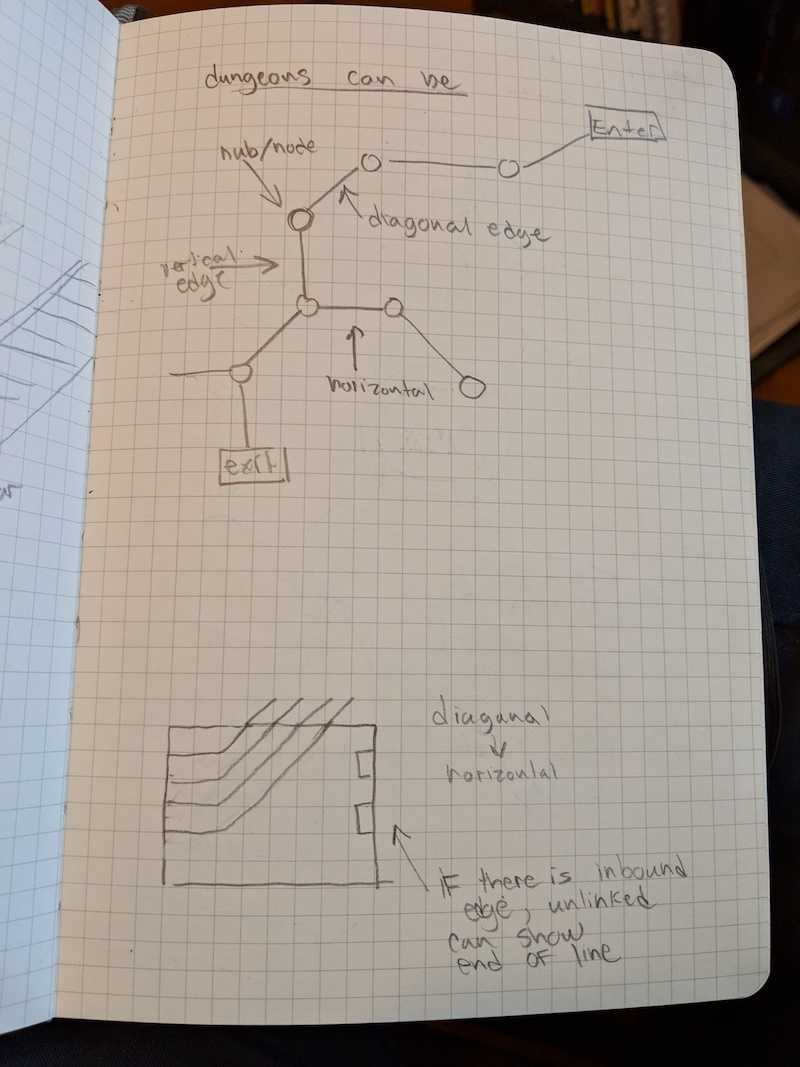 dungeons can be
Enter
nub/node
diagonal edge
vertical
edge
horizontal
exit
diaganal
horizontal
IF there is inbound
edge, unlinked
can show
end of line